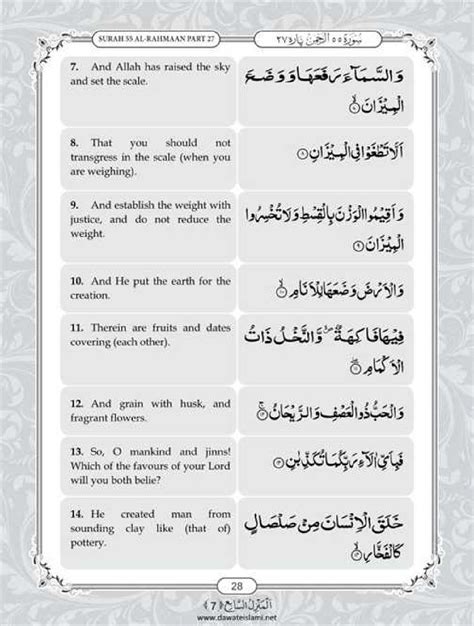 SURAH 55 AL-RAHMAAN PART 27
سُوْرَة ٥٥ الرَّحْمٰن پاره ٢٧
7. And Allah has raised the sky
and set the scale.
وَالسَّمَآءَ رَفَعَهَا وَوَضَعَ
الْمِيْزَانَ ۙ﴿٧﴾
8. That you should not
transgress in the scale (when you
are weighing).
اَلَّا تَطْغَوْا فِی الْمِيْزَانِ ﴿٨﴾
9. And establish the weight with
justice, and do not reduce the
weight.
وَاَقِيْمُوا الْوَزْنَ بِالْقِسْطِ وَلَا تُخْسِرُوا
الْمِيْزَانَ ﴿٩﴾
10. And He put the earth for the
creation.
وَالْاَرْضَ وَضَعَهَا لِلْاَنَامِ ۙ﴿١٠﴾
11. Therein are fruits and dates
covering (each other).
فِيْهَا فَاكِهَةٌ ۪ۙ وَّالنَّخْلُ ذَاتُ
الْاَكْمَامِ ۖ﴿١١﴾
12. And grain with husk, and
fragrant flowers.
وَالْحَبُّ ذُو الْعَصْفِ وَالرَّيْحَانُ ۚ﴿١٢﴾
13. So, O mankind and jinns!
Which of the favours of your Lord
will you both belie?
فَبِاَیِّ اٰلَآءِ رَبِّكُمَا تُكَذِّبٰنِ ﴿١٣﴾
14. He created man from
sounding clay like (that of)
pottery.
خَلَقَ الْاِنْسَانَ مِنْ صَلْصَالٍ
كَالْفَخَّارِ ۙ﴿١٤﴾
28
اَلْمَنْزِلُ السَّابِع ﴿7﴾
www.dawateislami.net